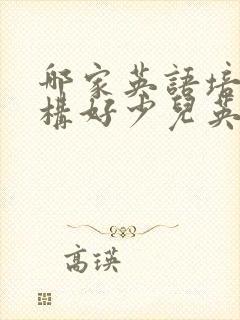 哪家英語培
構好少兒英
高瑛